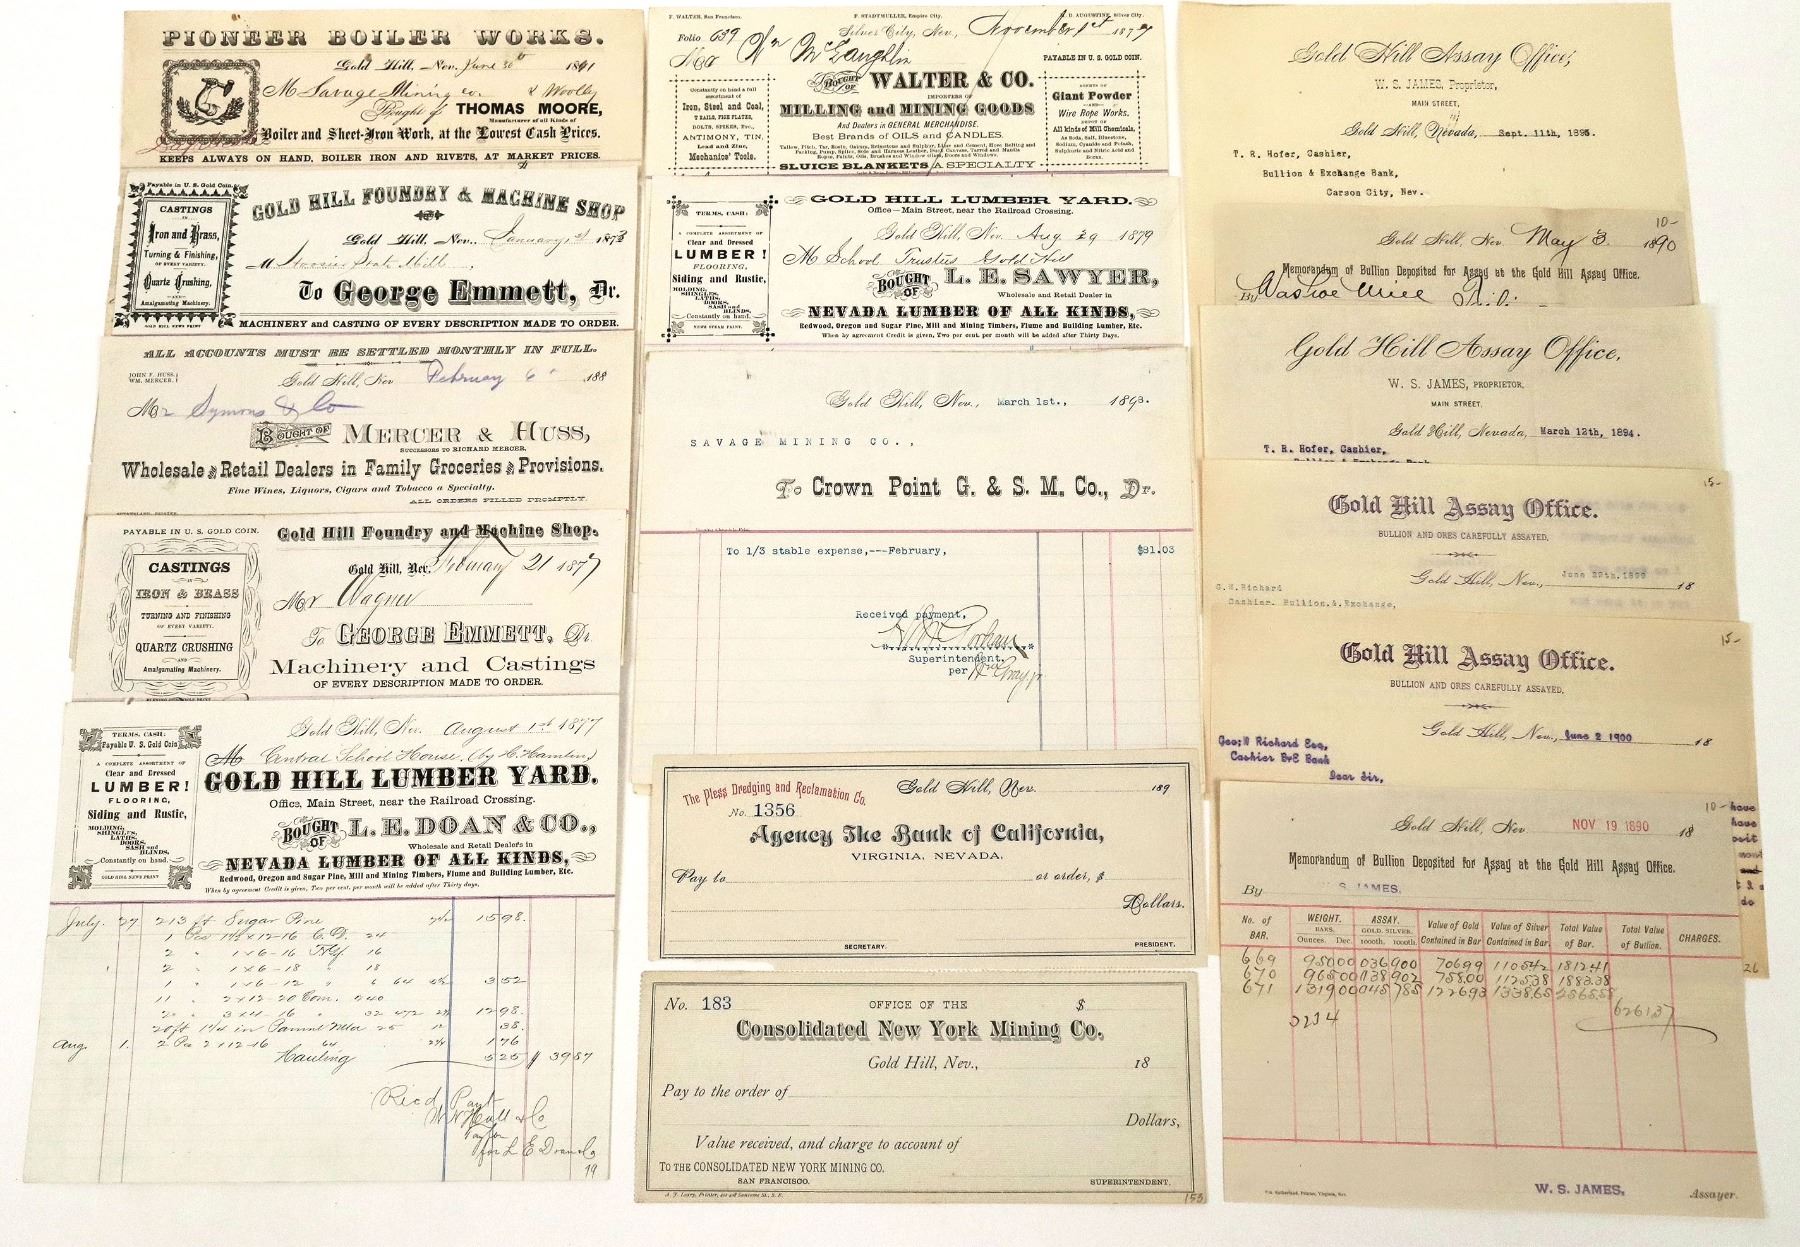 PIONEER BOILER WORKS.
Gold Hill, Nev. June 30th 1891
M Savage Mining co.
Bought of THOMAS MOORE,
Manufacturer of all Kinds of
Boiler and Sheet-Iron Work, at the Lowest Cash Prices.
KEEPS ALWAYS ON HAND, BOILER IRON AND RIVETS, AT MARKET PRICES.
Payable in U. S. Gold Coin.
CASTINGS
IN
Iron and Brass,
Turning & Finishing,
OF EVERY VARIETY.
Quartz Crushing,
—AND—
Amalgamating Machinery.
GOLD HILL NEWS PRINT
GOLD HILL FOUNDRY & MACHINE SHOP
Gold Hill, Nev. January 1st 1873
M Hoosier State Mill
To George Emmett, Dr.
MACHINERY and CASTING OF EVERY DESCRIPTION MADE TO ORDER.
ALL ACCOUNTS MUST BE SETTLED MONTHLY IN FULL.
JOHN F. HUSS,
WM. MERCER,
Gold Hill, Nev February 6 188
Mr Symons & Co
BOUGHT OF MERCER & HUSS,
SUCCESSORS TO RICHARD MERCER.
Wholesale and Retail Dealers in Family Groceries and Provisions.
Fine Wines, Liquors, Cigars and Tobacco a Specialty.
ALL ORDERS FILLED PROMPTLY.
PAYABLE IN U. S. GOLD COIN.
CASTINGS
IN
IRON & BRASS
TURNING AND FINISHING
OF EVERY VARIETY.
QUARTZ CRUSHING
AND
Amalgamating Machinery.
Gold Hill Foundry and Machine Shop.
Gold Hill, Nev. February 21 1877
Mr Wagner
To GEORGE EMMETT, Dr.
Machinery and Castings
OF EVERY DESCRIPTION MADE TO ORDER.
TERMS, CASH:
Payable U. S. Gold Coin
A COMPLETE ASSORTMENT OF
Clear and Dressed
LUMBER!
FLOORING,
Siding and Rustic,
MOLDING,
SHINGLES,
LATHS,
DOORS,
SASH and
BLINDS,
Constantly on hand.
GOLD HILL NEWS PRINT
Gold Hill, Nev. August 1st 1877
M Central School House, (by H. Hamlin)
GOLD HILL LUMBER YARD.
Office, Main Street, near the Railroad Crossing.
BOUGHT OF L. E. DOAN & CO.,
Wholesale and Retail Dealers in
NEVADA LUMBER OF ALL KINDS,
Redwood, Oregon and Sugar Pine, Mill and Mining Timbers, Flume and Building Lumber, Etc.
When by agreement Credit is given, Two per cent. per month will be added after Thirty days.
July. 27 213 ft Sugar Pine 15 98.
3 52
12 98.
38.
Aug. 1. 2 Pcs 2 x 12-16 1 76
Hauling 5 25 $ 39 87
Recd Payt
for L E Doan & Co
F. WALTER, San Francisco.
F. STADTMULLER, Empire City.
AUGUSTINE, Silver City.
Folio 639
Silver City, Nev., November 1st 1877
Mr Wm McLaughlin
PAYABLE IN U. S. GOLD COIN.
Constantly on hand a full
assortment of
Iron, Steel and Coal,
T RAILS, FISH PLATES,
BOLTS, SPIKES, Etc.,
ANTIMONY, TIN,
Lead and Zinc,
Mechanics' Tools.
BOUGHT OF WALTER & CO.
IMPORTERS OF
MILLING and MINING GOODS
And Dealers in GENERAL MERCHANDISE.
Best Brands of OILS and CANDLES.
SLUICE BLANKETS A SPECIALTY
AGENTS OF
Giant Powder
—AND—
Wire Rope Works.
DEPOT OF
All kinds of Mill Chemicals,
As Soda, Salt, Bluestone,
Sodium, Cyanide and Potash,
Sulphuric and Nitric Acid and
Borax.
TERMS, CASH:
A COMPLETE ASSORTMENT OF
Clear and Dressed
LUMBER!
FLOORING,
Siding and Rustic,
MOLDING,
SHINGLES,
LATHS,
DOORS,
SASH and
BLINDS,
Constantly on hand.
NEWS STEAM PRINT.
GOLD HILL LUMBER YARD.
Office—Main Street, near the Railroad Crossing.
Gold Hill, Nev. Aug. 29 1879
M School Trustees Gold Hill
BOUGHT OF L. E. SAWYER,
Wholesale and Retail Dealer in
NEVADA LUMBER OF ALL KINDS,
Redwood, Oregon and Sugar Pine, Mill and Mining Timbers, Flume and Building Lumber, Etc.
When by agreement Credit is given, Two per cent. per month will be added after Thirty Days.
Gold Hill, Nev., March 1st., 1893.
SAVAGE MINING CO.,
To Crown Point G. & S. M. Co., Dr.
To 1/3 stable expense,---February, $31.03
Received payment,
Superintendent.
per
The Pless Dredging and Reclamation Co.
Gold Hill, Nev. 189
No. 1356
Agency The Bank of California,
VIRGINIA, NEVADA.
Pay to or order, $
Dollars.
SECRETARY. PRESIDENT.
No. 183 OFFICE OF THE $
Consolidated New York Mining Co.
Gold Hill, Nev., 18
Pay to the order of
Dollars,
Value received, and charge to account of
TO THE CONSOLIDATED NEW YORK MINING CO.
SAN FRANCISCO. SUPERINTENDENT.
153
Gold Hill Assay Office,
W. S. JAMES, Proprietor,
MAIN STREET,
Gold Hill, Nevada, Sept. 11th, 1895.
T. R. Hofer, Cashier,
Bullion & Exchange Bank,
Carson City, Nev.
10-
Gold Hill, Nev May 3 1890
Memorandum of Bullion Deposited for Assay at the Gold Hill Assay Office.
By Washoe Mill
Gold Hill Assay Office,
W. S. JAMES, PROPRIETOR,
MAIN STREET,
Gold Hill, Nevada, March 12th, 1894.
T. R. Hofer, Cashier,
15-
Gold Hill Assay Office.
BULLION AND ORES CAREFULLY ASSAYED.
Gold Hill, Nev., June 29th.1899 18
G.W.Richard
Cashier. Bullion.&.Exchange,
15-
Gold Hill Assay Office.
BULLION AND ORES CAREFULLY ASSAYED.
Gold Hill, Nev., June 2 1900 18
Geo; W Richard Esq,
Cashier B&E Bank
Dear Sir,
10-
Gold Hill, Nev NOV 19 1890 18
Memorandum of Bullion Deposited for Assay at the Gold Hill Assay Office.
By W. S. JAMES.
No. of BAR. WEIGHT. BARS. Ounces. Dec. ASSAY. GOLD. SILVER. 1000th. 1000th. Value of Gold Contained in Bar Value of Silver Contained in Bar. Total Value of Bar. Total Value of Bullion. CHARGES.
669 950 00 036 900 706 99 1105 42 1812 41
670 965 00 038 902 758.00 1125 38 1883.38
671 1319 00 045 785 1226 93 1338.65 2565.58
3234 6261 37
W. S. JAMES, Assayer.